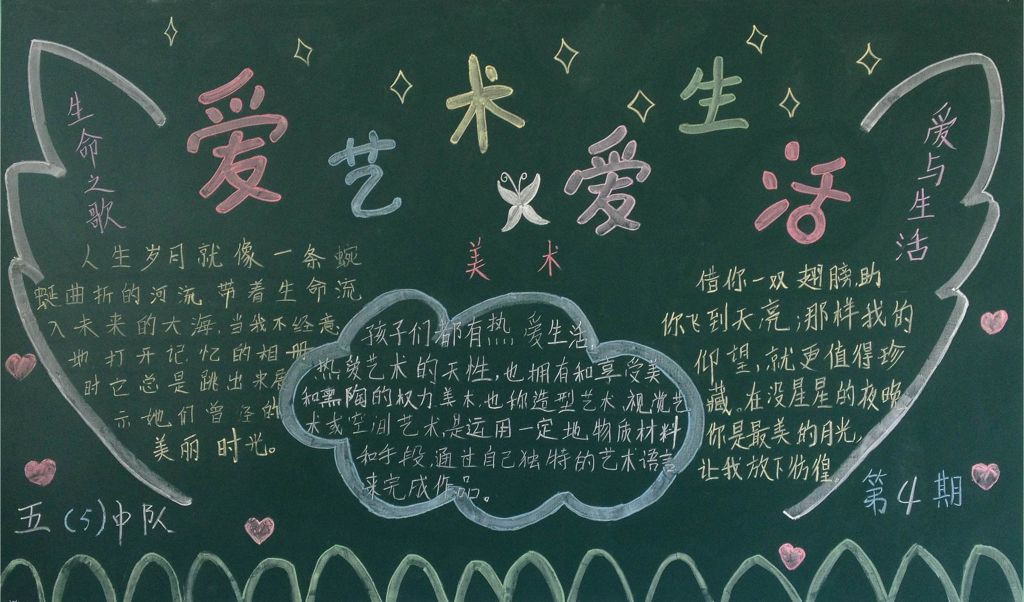 爱艺术爱生活
生命之歌
人生岁月就像一条蜿
蜒曲折的河流,带着生命流
入未来的大海,当我不经意
地打开记忆的相册
时它总是跳出来展
示她们曾经的
美丽时光。
美术
孩子们都有热爱生活
热爱艺术的天性,也拥有和享受美
和熏陶的权力美术也称造型艺术、视觉艺
术或空间艺术,是运用一定地物质材料
和手段,通过自己独特的艺术语言
来完成作品。
爱与生活
借你一双翅膀,助
你飞到天亮;那样我的
仰望,就更值得珍
藏。在没星星的夜晚,
你是最美的月光,
让我放下彷徨。
五(5)中队
第4期